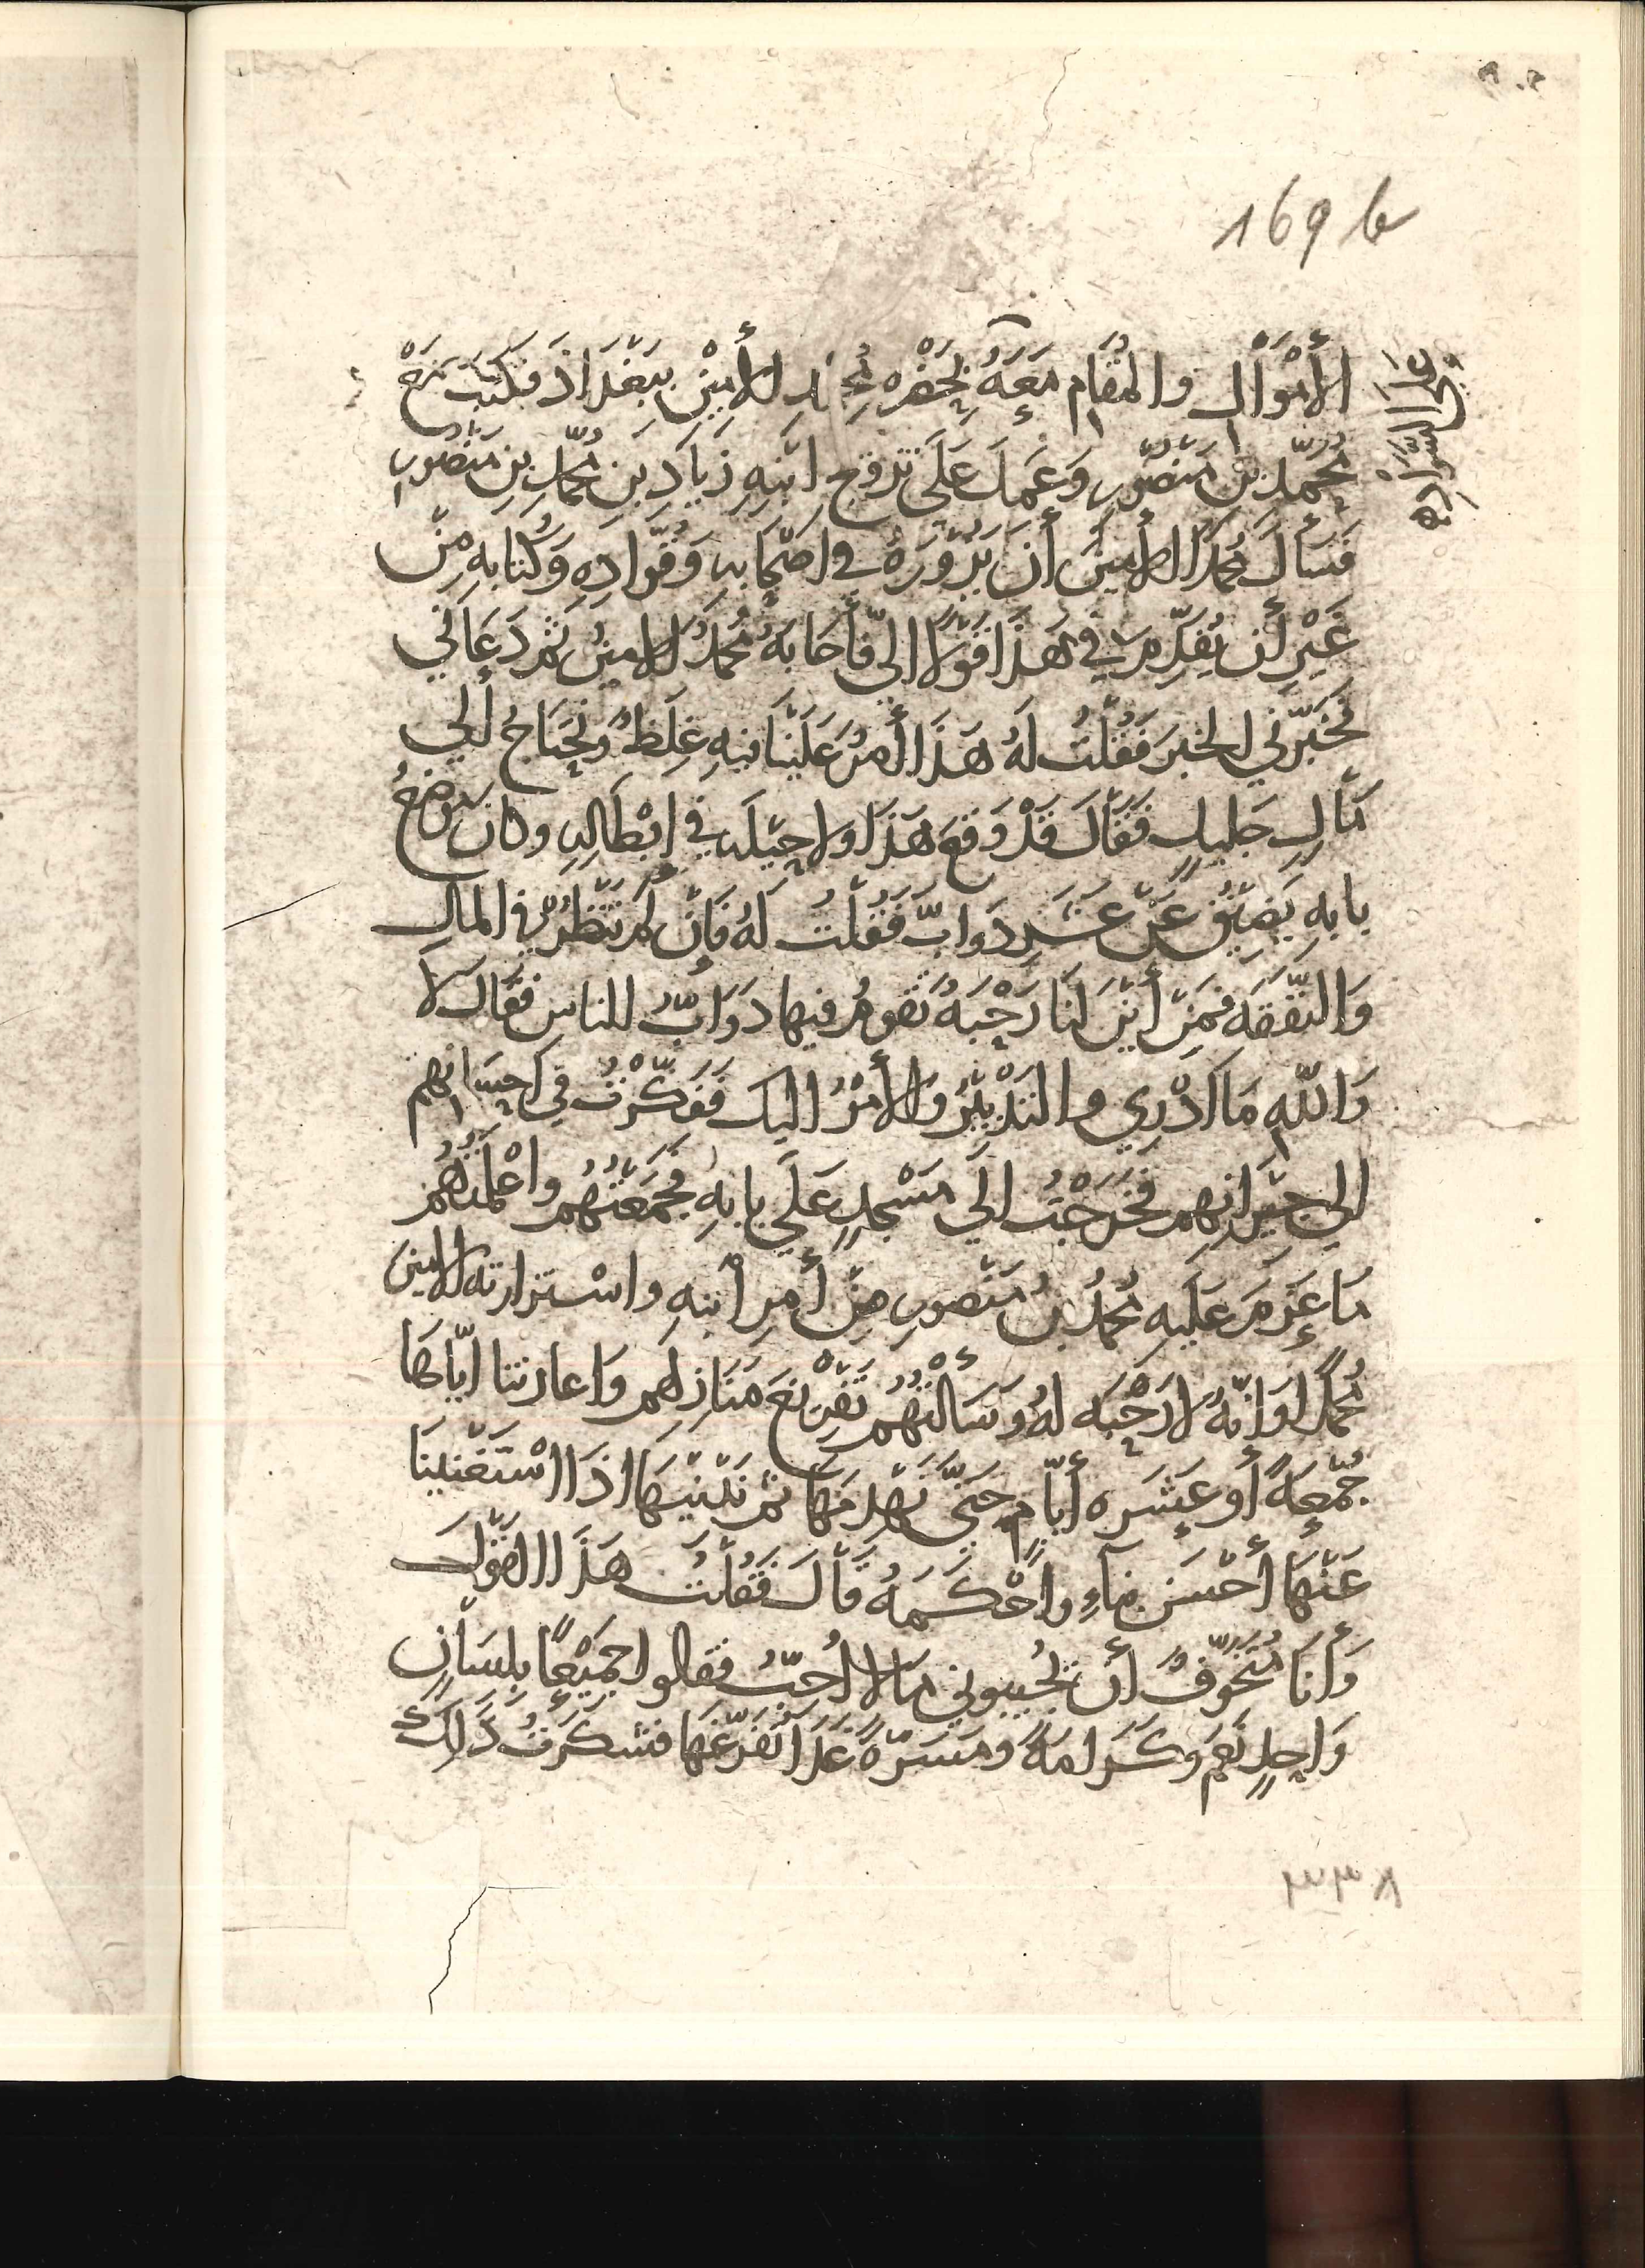 169 b
الأَمْوَال والمُقَام مَعَهُ بِحَضْرَه مُحَمَّدٍ الأَمِيْنِ بِبَغْدَاذَ فَكَتَبَ نَجَحْ
عَلَى السَّوَادِ
مُحَمَّدِ بْنِ مَنْصُورٍ وَعَمِلَ عَلَى تَزَوّج ابْنِهِ زِيَادِ بْنِ مُحَمَّدِ بْنِ مَنْصُورٍ
فَسَأَلَ مُحَمَّدًا الأَمِينَ أَنْ يَزُوْرَهُ في اصْحَابِهِ وَقُوّادِهِ وَكُتّابِهِ مِنْ
غَيْرِ أَن يُقَدِّمَ في هَذَا قَوْلًا اليَّ فَأَجَابَهُ مُحَمَّدُ الامينُ ثُمّ دَعَانِي
فَخَبَّرَنِي الخبرَ فَقُلْتُ لَهُ هَذَا أَمرٌ عَلَيْنَا فيهِ غِلَظٌ وَنَحْتَاجُ إلَي
مَالٍ جَلِيلٍ فَقَالَ قَدْ وَقَعَ هَذَا ولا حِيْلَه في ابْطَالِهِ وكانَ مَوْضِعُ
بابِهِ يَضِيْقُ عَنْ عَشرِ دَوابّ فَقُلْتُ لَهُ فَإِنْ لَمْ نَنْظُرْ في المالِ
وَالنَّفَقَه فَمِنْ أَيْنَ لَنَا رَحْبَهٌ تَقُومُ فيها دَوَابُّ للناس فقَالَ لا
وَاللّهِ مَا ادْرِي والتَدْبِيْرُ وَالأَمْرُ اليك فَفَكَّرْتُ في احسانهم
الي جِيْرَانِهم فخَرَجْتُ الَي مَسْجِدٍ عَلَي بابِهِ فَجَمَعْتُهُم واعْلَمْتُهُم
مَا عَزَمَ عَلَيهِ مُحَمَّدُ بنُ مَنْصورٍ مِنْ أَمرِ ابْنِهِ واسْتزارته الامين
مُحَمَّدًا وَانّهُ لا رَحْبَه لهُ وَسَأَلْتُهُم تَفْرِيْغَ مَنَازِلهم وَاعارتنا ايّاهَا
جُمْعَهً أو عَشَره أَيَّامٍ حَتّى نَهْدِمَهَا ثُمّ نَبْنِيْهَا اذَا اسْتَغْنَينَا
عَنْهَا أَحْسَنَ بناءٍ واحْكَمَهُ قَالَ فَقُلْتُ هَذَا القَوْلَ
وَأَنَا مُتَخَوِّفٌ أَن يُجِيبوني بمَا لا احُبُّ فقالوا جَمِيْعًا بِلِسَانٍ
وَاحِدٍ نَعَم وكَرامَهً ومَسَرّةً غَدًا نُفَرِّغُهَا فشكرتُ ذَلِكَ
٣٣٨